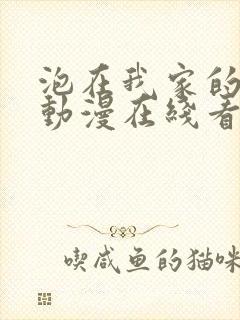 泡在我家的
動漫在綫看
喫咸鱼的猫咪